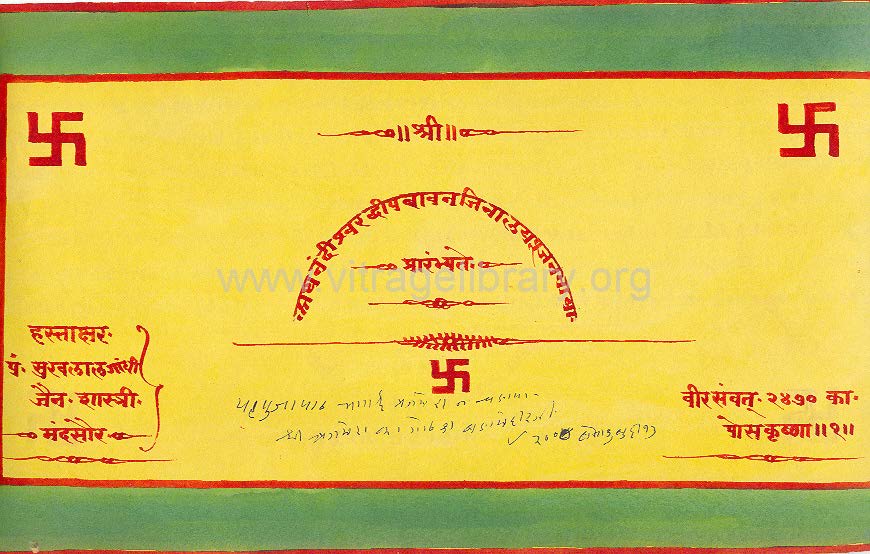 ॥श्री॥
अथ नंदीश्वरद्वीप बावन जिनालय पूजन भाषा
प्रारंभ्यते
www.vitragelibrary.org
हस्ताक्षर-
पं. सुखलाल गांधी
जैन शास्त्री-
मंदसौर-
वीर संवत्- २४७० का-
पोस कृष्णा॥१॥